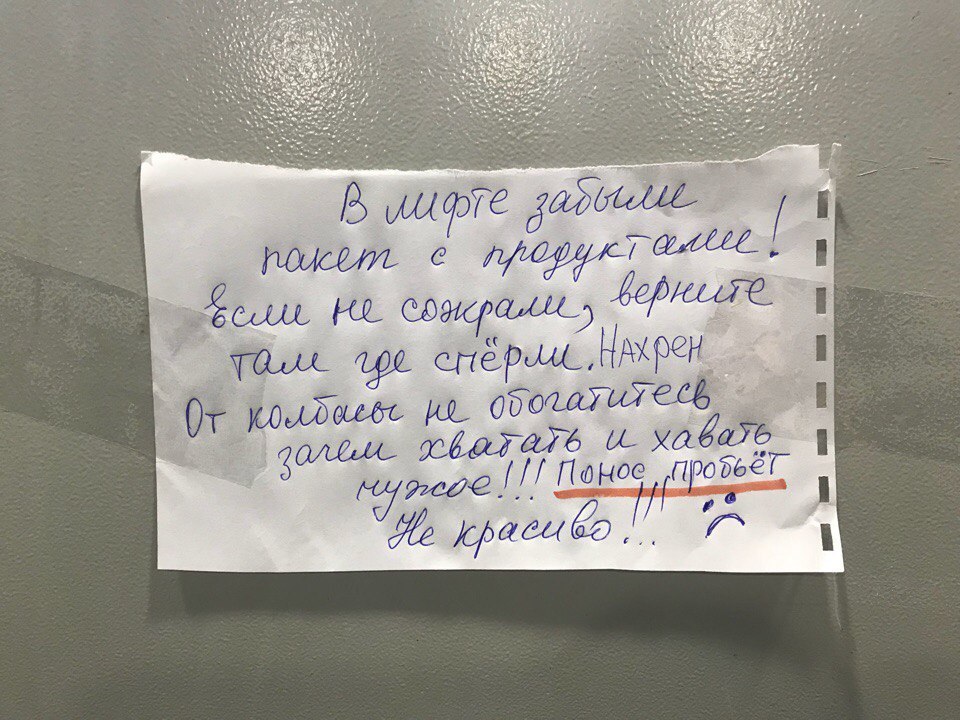 В лифте забыли
пакет с продуктами!
Если не сожрали, верните
там где спёрли. Нахрен
От колбасы не обогатитесь
зачем хватать и хавать
чужое!!! Понос пробьёт
Не красиво!!! :(